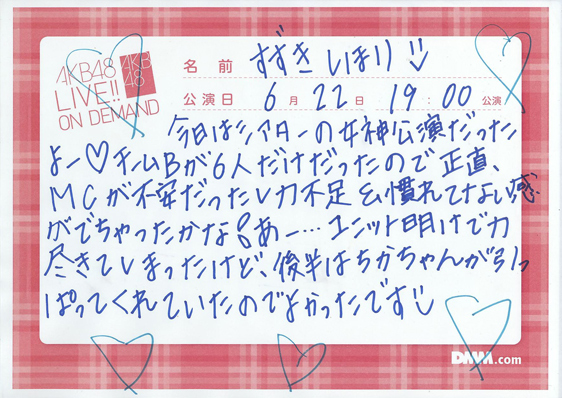 AKB48
LIVE!!
ON DEMAND
AKB
48
名前 すずきしほり
公演日 6月22日 19:00公演
今日はシアターの女神公演だった
よー♡チームBが6人だけだったので正直、
MCが不安だったし力不足&慣れてない感
がでちゃったかな。あー…ユニット明けで力
尽きてしまったけど、後半はちかちゃんが引っ
ぱってくれていたのでよかったです
DMM.com